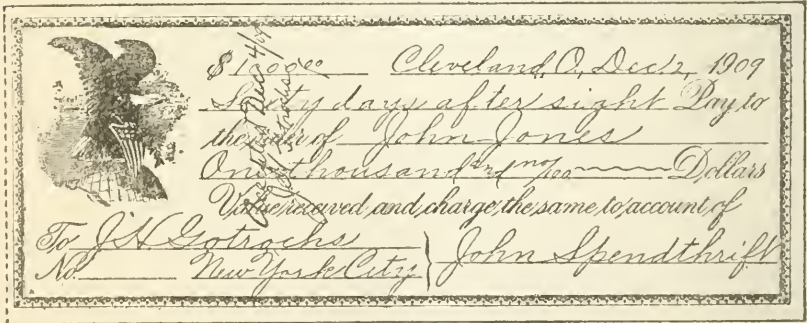 $1000.00 Cleveland, O, Dec. 2, 1909
Sixty days after sight Pay to
the order of John Jones
One thousand and no/100 Dollars
Value received and charge the same to account of
To J. H. Gotrochs
No. New York City
John Spendthrift
Accepted Dec 4/09